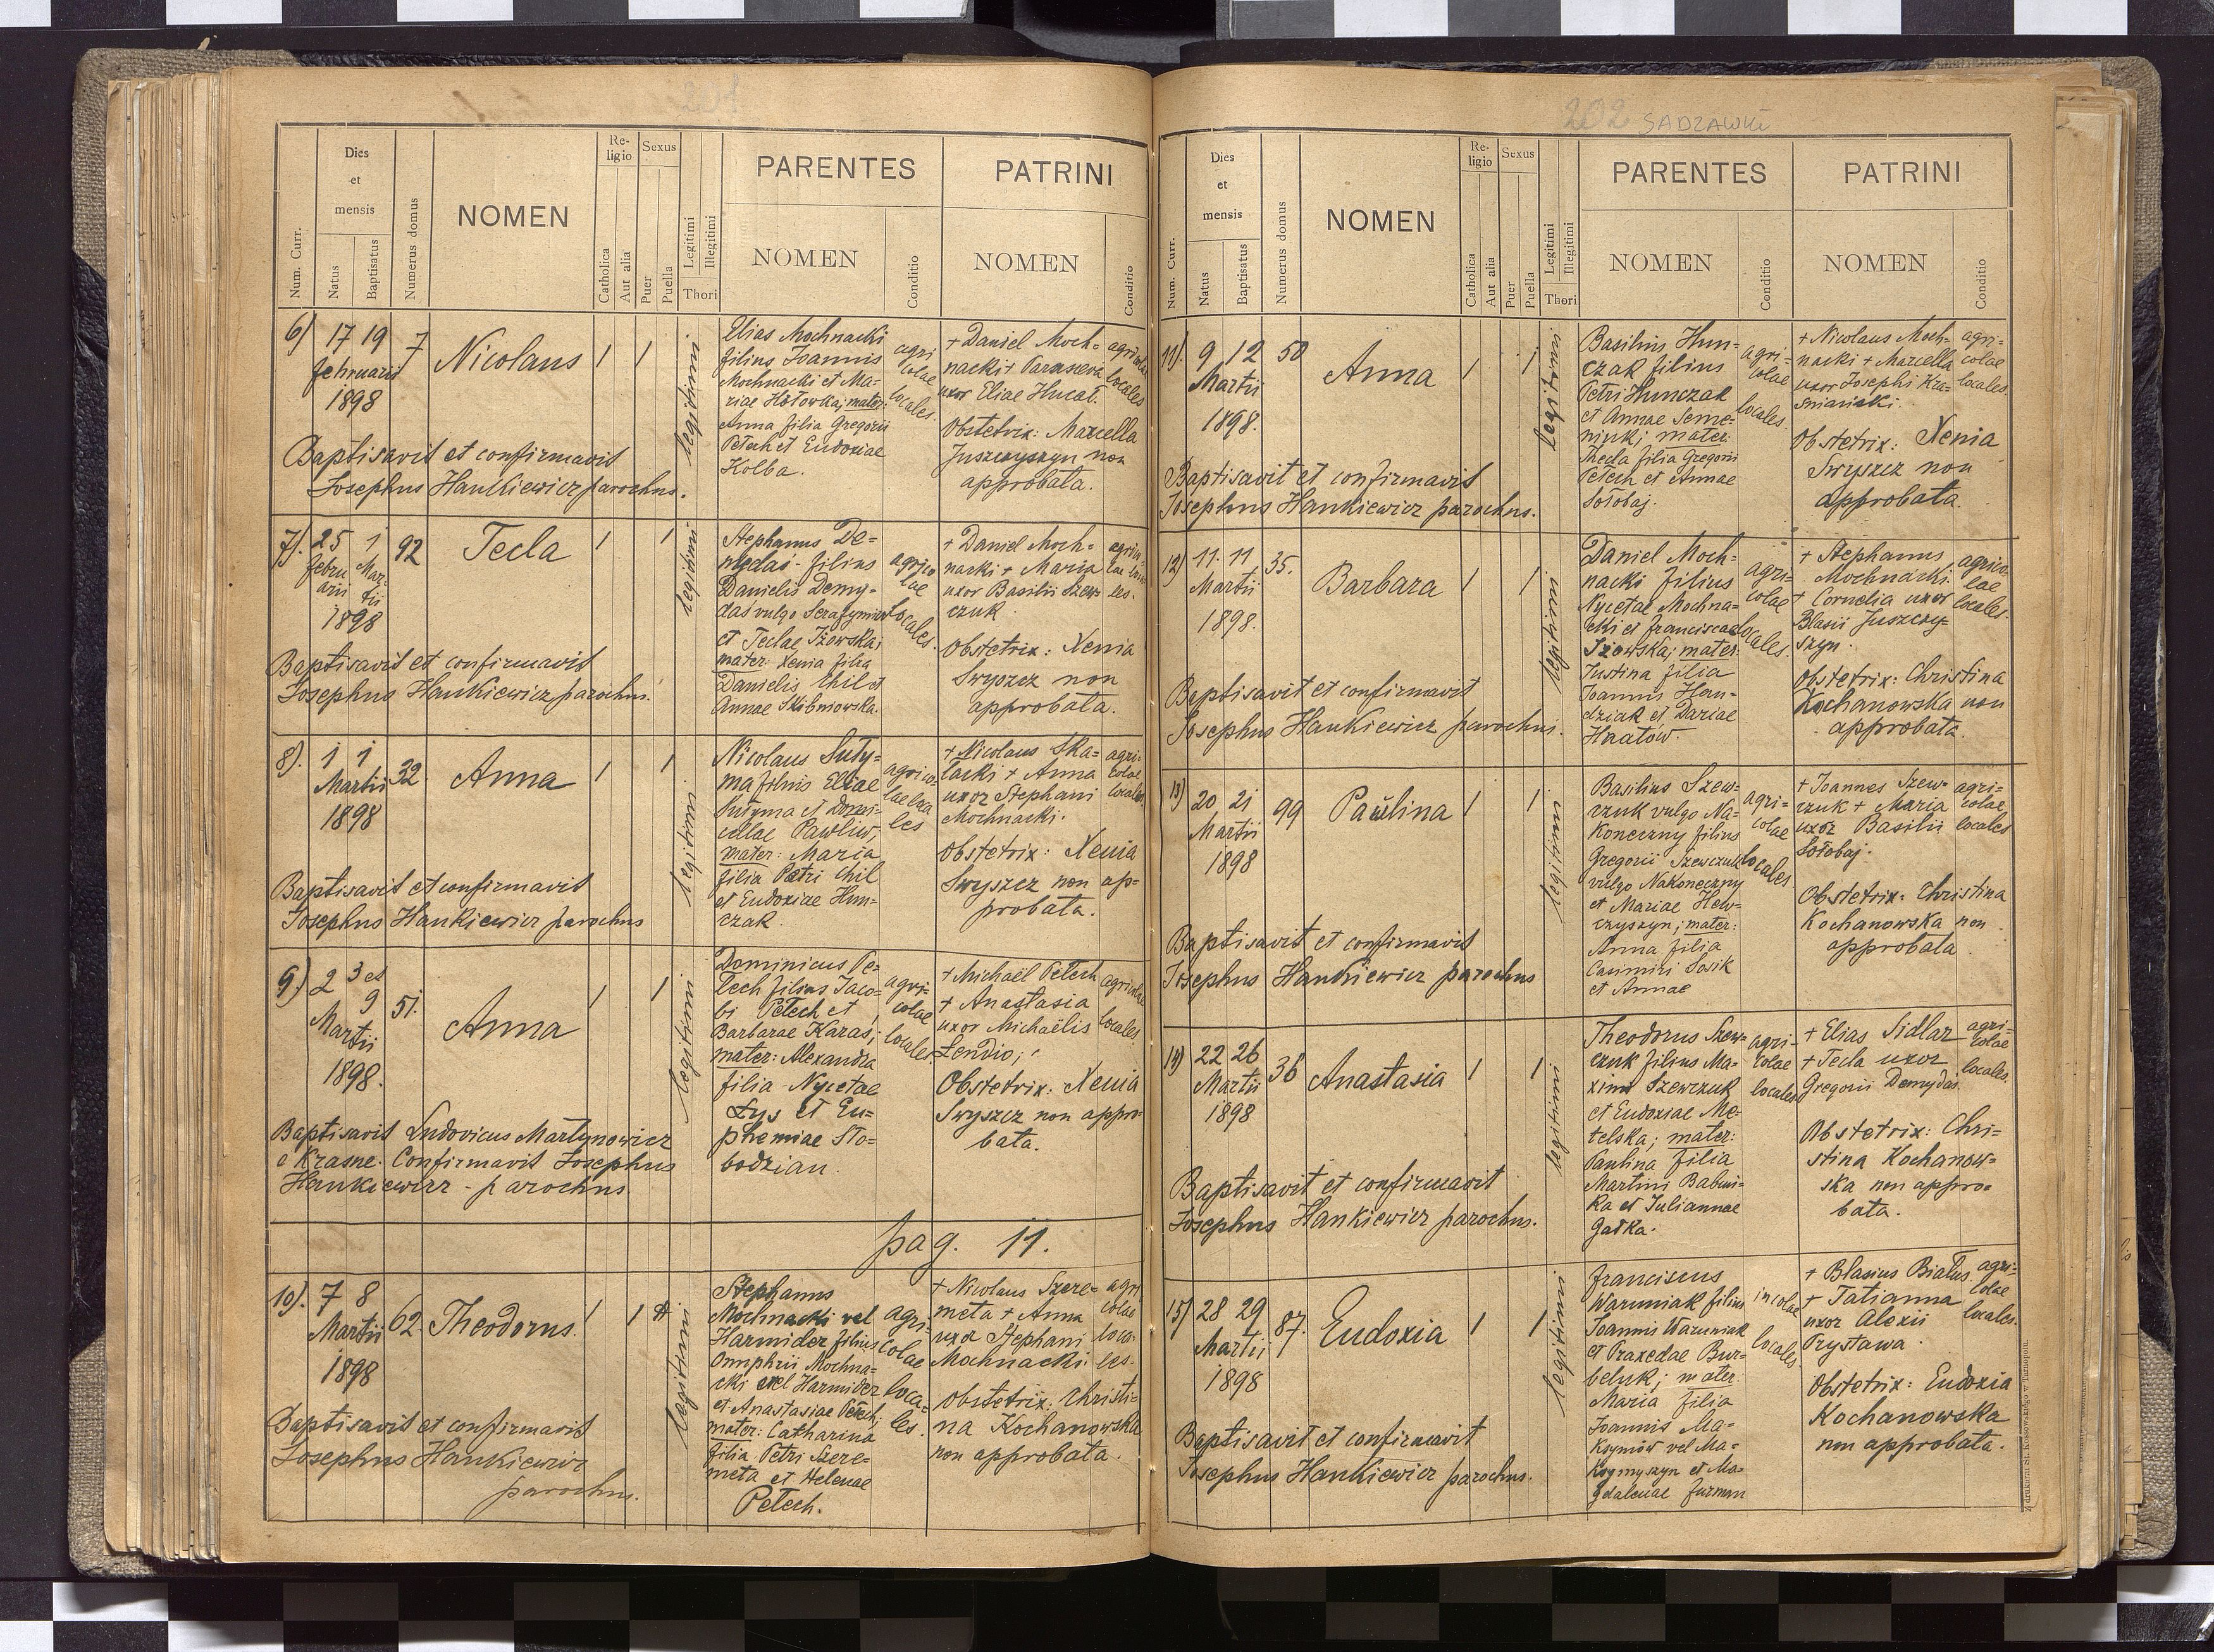 201
Num. Curr.
Dies
et
mensis
Natus
Baptisatus
Numerus domus
NOMEN
Re-
ligio
Catholica
Aut alia
Sexus
Puer
Puella
Legitimi
Illegitimi
Thori
PARENTES
NOMEN
Conditio
PATRINI
NOMEN
Conditio
6)
17 19
februarii
1898
7
Nicolaus
1
1
legitimi
Elias Mochnacki
filius Joannis
Mochnacki et Ma-
riae Hołowka; mater:
Anna filia Gregorii
Petech et Eudoxiae
Kolba.
agri
colae
locales.
+ Daniel Moch-
nacki + Paraszeva
uxor Eliae Hucał.
agricolae
locales
Obstetrix: Marcella
Juszczyszyn non
approbata.
Baptisavit et confirmavit
Josephus Hankiewicz parochus.
7).
25 1
febru Mar-
arii tii
1898
92
Tecla
1
1
legitimi
Stephanus De-
mydas filius
Danielis Demy-
das vulgo Serafymiw
et Teclae Iżowska;
mater: Xenia filia
Danielis Chil et
Annae Skibniowska.
agrico
lae
locales.
+ Daniel Moch-
nacki + Maria
uxor Basilii Szew-
czuk
Obstetrix: Xenia
Swyszcz non
approbata.
Baptisavit et confirmavit
Josephus Hankiewicz parochus.
8).
1 1
Martii
1898
32
Anna
1
1
legitimi
Nicolaus Suty-
ma filius Eliae
Sutyma et Domi-
cellae Pawliw,
mater: Maria
filia Petri Chil
et Eudoxiae Hun-
czak.
agrico-
lae loca
les
+ Nicolaus Ska-
łacki + Anna
uxor Stephani
Mochnacki.
agri-
colae
locales.
Obstetrix: Xenia
Swyszcz non ap-
probata.
Baptisavit et confirmavit
Josephus Hankiewicz parochus
9)
2 3 et
9
Martii
1898.
51.
Anna
1
1
legitimi
Dominicus Pe-
tech filius Jaco-
bi Petech et
Barbarae Karas;
mater: Alexandra
filia Nycetae
Łys et Eu-
phemiae Sło-
bodzian.
agri-
colae
locales
+ Michaël Petech
+ Anastasia
uxor Michaëlis
Łendio;
agricolae
locales
Obstetrix: Xenia
Swyszcz non appro-
bata.
Baptisavit Ludovicus Martynowicz
e Krasne. Confirmavit Josephus
Hankiewicz - parochus.
pag. 11.
10).
7 8
Martii
1898
62.
Theodorus.
1
1
legitimi
Stephanus
Mochnacki vel
Harmider filius
Onuphrii Mochna-
cki vel Harmider
et Anastasiae Petech;
mater: Catharina
filia Petri Szere-
meta et Helenae
Petech.
agri-
colae
loca-
les.
+ Nicolaus Szere-
meta + Anna
uxor Stephani
Mochnacki.
agri
colae
loca-
les.
Obstetrix: Christi-
na Kochanowska
non approbata.
Baptisavit et confirmavit
Josephus Hankiewicz
parochus.
202 SADZAWKI
Num. Curr.
Dies
et
mensis
Natus
Baptisatus
Numerus domus
NOMEN
Re-
ligio
Catholica
Aut alia
Sexus
Puer
Puella
Legitimi
Illegitimi
Thori
PARENTES
NOMEN
Conditio
PATRINI
NOMEN
Conditio
11).
9 12
Martii
1898.
50
Anna
1
1
legitimi
Basilius Hun-
czak filius
Petri Hunczak
et Annae Seme-
niuk; mater:
Thecla filia Gregorii
Petech et Annae
Sołobaj.
agri-
colae
locales
+ Nicolaus Moch-
nacki + Marcella
uxor Josephi Kra-
sniański.
agri-
colae
locales.
Obstetrix: Xenia
Swyszcz non
approbata.
Baptisavit et confirmavit
Josephus Hankiewicz parochus.
12)
11. 11
Martii
1898.
35.
Barbara
1
1
legitimi
Daniel Moch-
nacki filius
Nycetae Mochna-
cki et franciscae
Iżowska; mater:
Justina filia
Joannis Han-
dziak et Dariae
Hnatów.
agri-
colae
locales.
+ Stephanus
Mochnacki
+ Cornelia uxor
Blasii Juszczy-
szyn.
agrico-
lae
locales.
Obstetrix: Christina
Kochanowska non
approbata.
Baptisavit et confirmavit
Josephus Hankiewicz parochus.
13)
20 21
Martii
1898
99
Paulina
1
1
legitimi
Basilius Szew-
czuk vulgo Na-
koneczny filius
Gregorii Szewczuk
vulgo Nakoneczny
et Mariae Hew-
czyszyn; mater:
Anna filia
Casimiri Sosik
et Annae
agri-
colae
locales
+ Joannes Szew-
czuk + Maria
uxor Basilii
Sołobaj.
agri-
colae
locales
Obstetrix: Christina
Kochanowska non
approbata.
Baptisavit et confirmavit
Josephus Hankiewicz parochus
14)
22 26
Martii
1898
36
Anastasia
1
1
legitimi
Theodorus Szew-
czuk filius Ma-
ximi Szewczuk
et Eudoxiae Me-
telska; mater:
Paulina filia
Martini Babini-
ka et Juliannae
Gałka.
agri-
colae
locales
+ Elias Sidlar
+ Tecla uxor
Gregorii Demydas
agri-
colae
locales.
Obstetrix: Chri-
stina Kochanow-
ska non appro-
bata.
Baptisavit et confirmavit
Josephus Hankiewicz parochus.
15)
28 29
Martii
1898
87.
Eudoxia
1
1
legitimi
franciscus
Waruniak filius
Joannis Waruniak
et Praxedae Bur-
beluk; mater:
Maria filia
Joannis Ma-
ksymów vel Ma-
ksymyszyn et Ma-
gdalenae furman
incolae
locales
+ Blasius Białus
+ Tatianna
uxor Alexii
Prystawa.
agri-
colae
locales.
Obstetrix: Eudoxia
Kochanowska
non approbata.
Baptisavit et confirmavit
Josephus Hankiewicz parochus.
Z drukarni St. Kossowskiego w Tarnopolu.